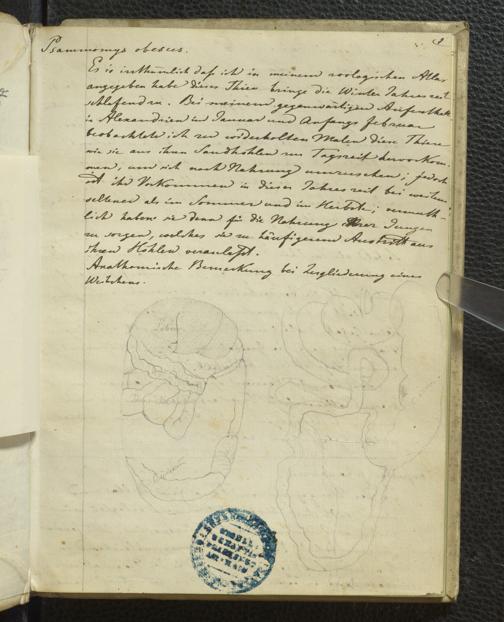 Psammomys obesus.
Es is irrthümlich daß ich in meinem zoologischen Atlas
angegeben habe dieses Thier bringe die Winter Jahreszeit
schlafend zu. Bei meinem gegenwärtigen Aufenthalt
in Alexandrien im Januar und Anfangs Februar
beobachtete ich zu wiederholten Malen diese Thiere
wie sie aus ihren Sandhöhlen zur Tagszeit hervorkom-
men, um sich nach Nahrung umzusehen; jedoch
ist ihr Vorkommen in dieser Jahreszeit bei weitem
seltener als im Sommer und im Herbste; vermuth-
lich haben sie denn für die Nahrung ihrer Jungen
zu sorgen, welches sie zu häufigerem Austritt aus
ihren Höhlen veranlaßt.
Anathomische Bemerkung bei Zergliederung eines
Weibchens.